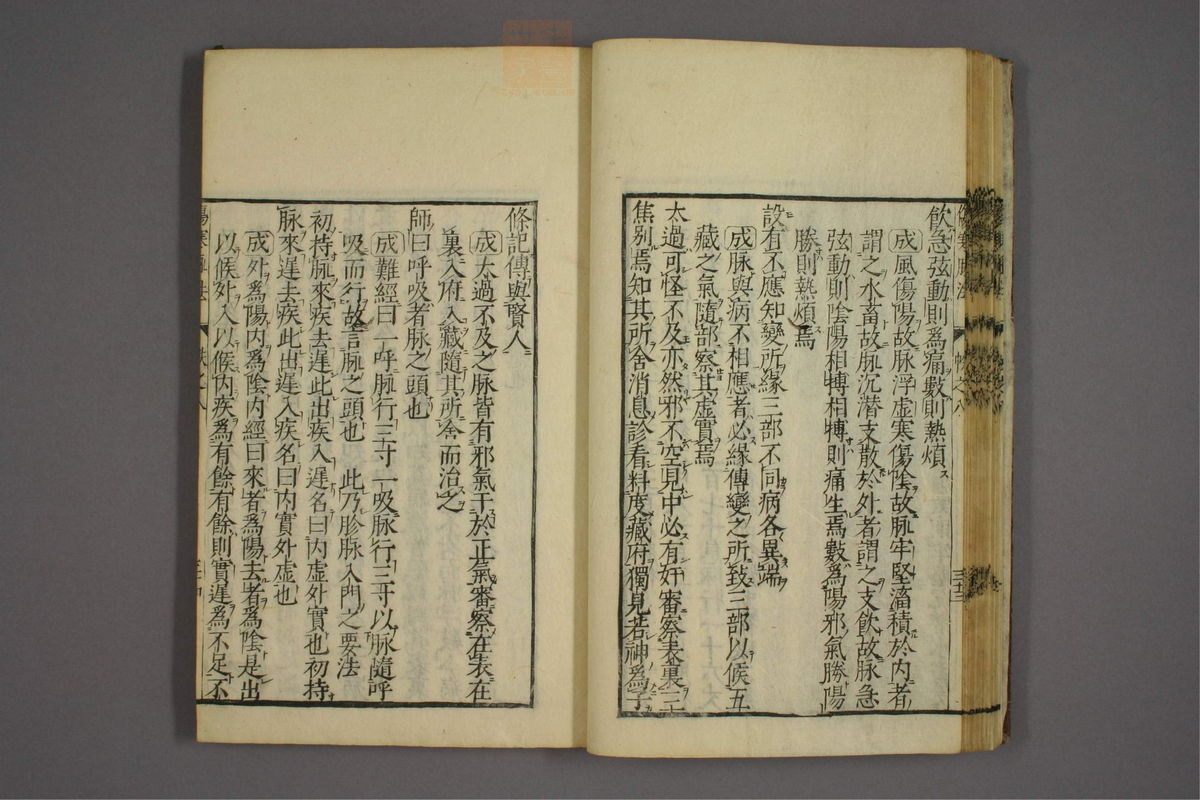 飲急弦動則爲痛數則熱煩
成風傷陽故脉浮虚寒傷陰故脉牢堅畜積於内者
謂之水畜故脉沉潜支散於外者謂之支飲故脉急
弦動則陰陽相摶相摶則痛生焉數爲陽邪氣勝陽
勝則熱煩焉
設有不應知變所緣三部不同病各異端
成脉與病不相應者必緣傳變之所致三部以候五
藏之氣隨部察其虚實焉
太過可怪不及亦然邪不空見中必有奸審察表裏三
焦别焉知其所舍消息診看料度藏府獨見若神爲子
條記傳與賢人
成太過不及之脉皆有邪氣干於正氣審察在表在
裏入府入藏隨其所舍而治之
師曰呼吸者脉之頭也
成難經曰一呼脉行三寸一吸脉行三寸以脉隨呼
吸而行故言脉之頭也 此乃胗脉入門之要法
初持脉來疾去遲此出疾入遲名曰内虚外實也初持
脉來遲去疾此出遲入疾名曰内實外虚也
成外爲陽内爲陰内經曰來者爲陽去者爲陰是出
以候外入以候内疾爲有餘有餘則實遲爲不足不